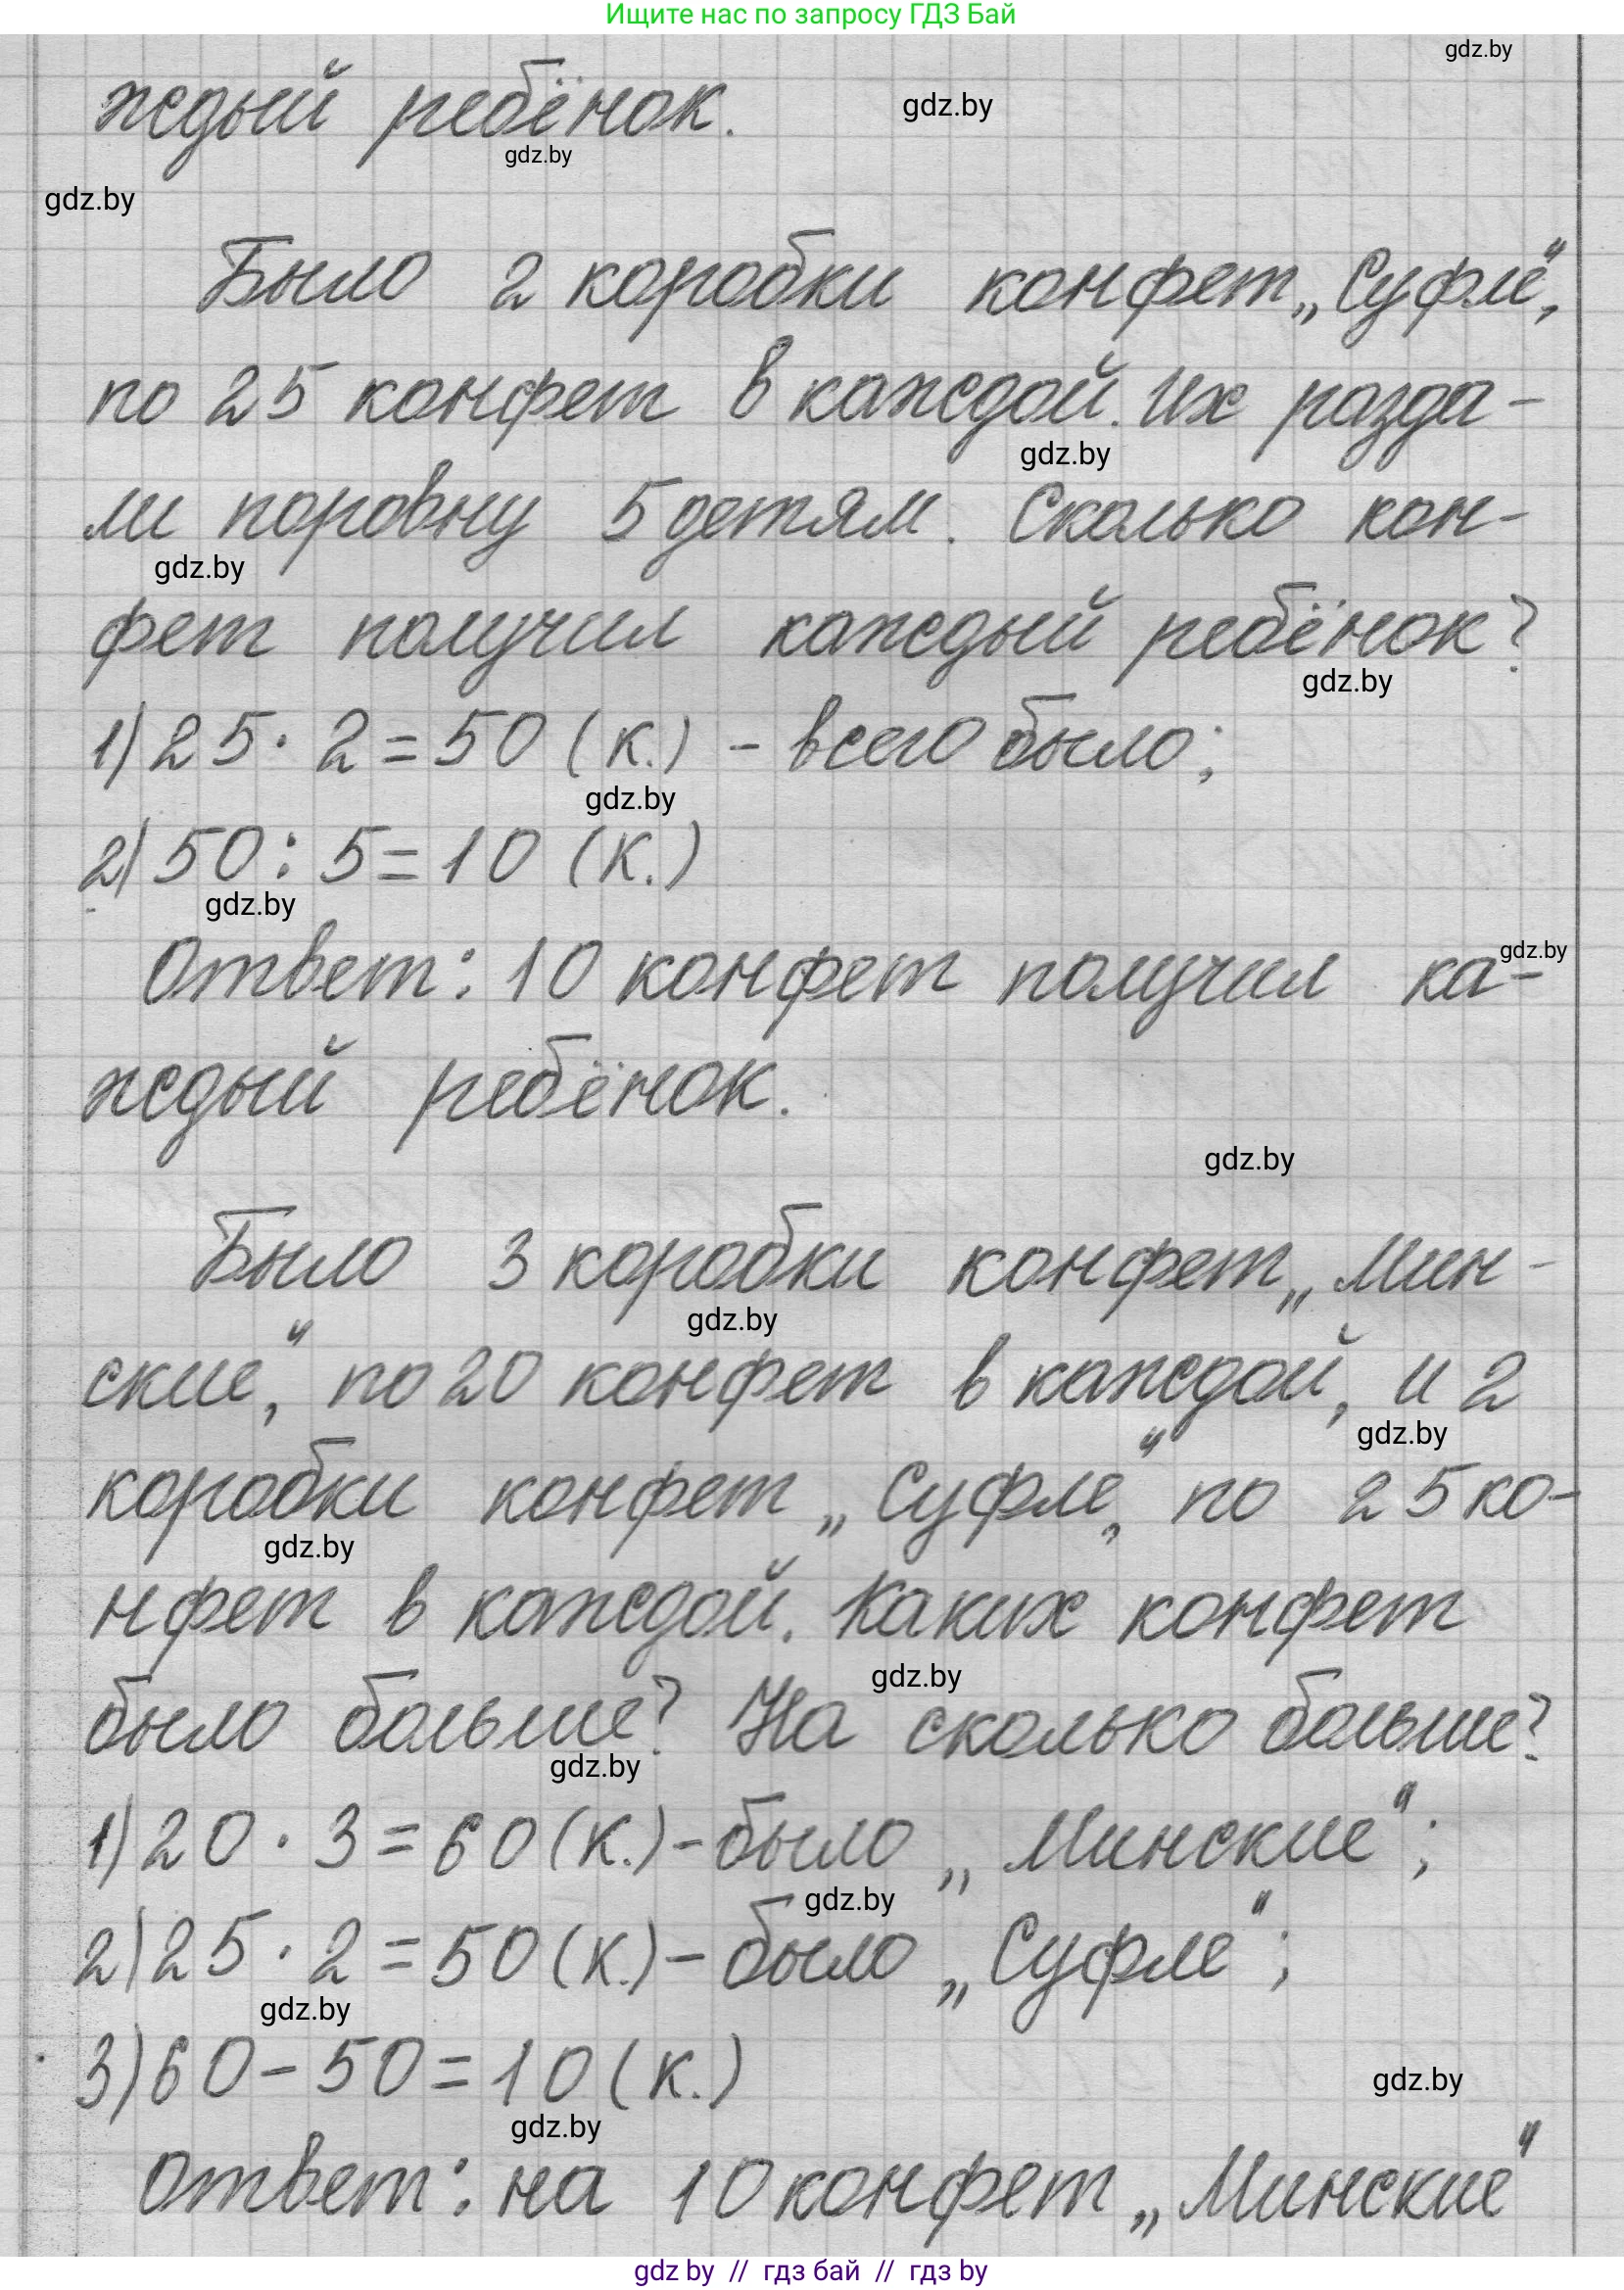 Ищите нас по запросу ГДЗ Бай
gdz.by
ждый ребёнок.
gdz.by
gdz.by
gdz.by
Было 2 коробки конфет „Суфле“,
по 25 конфет в каждой. Их разда-
gdz.by
ли поровну 5 детям. Сколько кон-
gdz.by
фет получил каждый ребёнок?
gdz.by
1) 25 · 2 = 50 (к.) - всего было;
gdz.by
2) 50 : 5 = 10 (к.)
gdz.by
Ответ: 10 конфет получил ка-
gdz.by
ждый ребёнок.
gdz.by
Было 3 коробки конфет „Мин-
gdz.by
ские“, по 20 конфет в каждой, и 2
gdz.by
коробки конфет „Суфле“, по 25 ко-
gdz.by
нфет в каждой. Каких конфет
gdz.by
было больше? На сколько больше?
gdz.by
1) 20 · 3 = 60 (к.) - было „Минские“;
gdz.by
2) 25 · 2 = 50 (к.) - было „Суфле“;
gdz.by
3) 60 - 50 = 10 (к.)
gdz.by
gdz.by
Ответ: на 10 конфет „Минские“
gdz by // гдз бай // гдз by